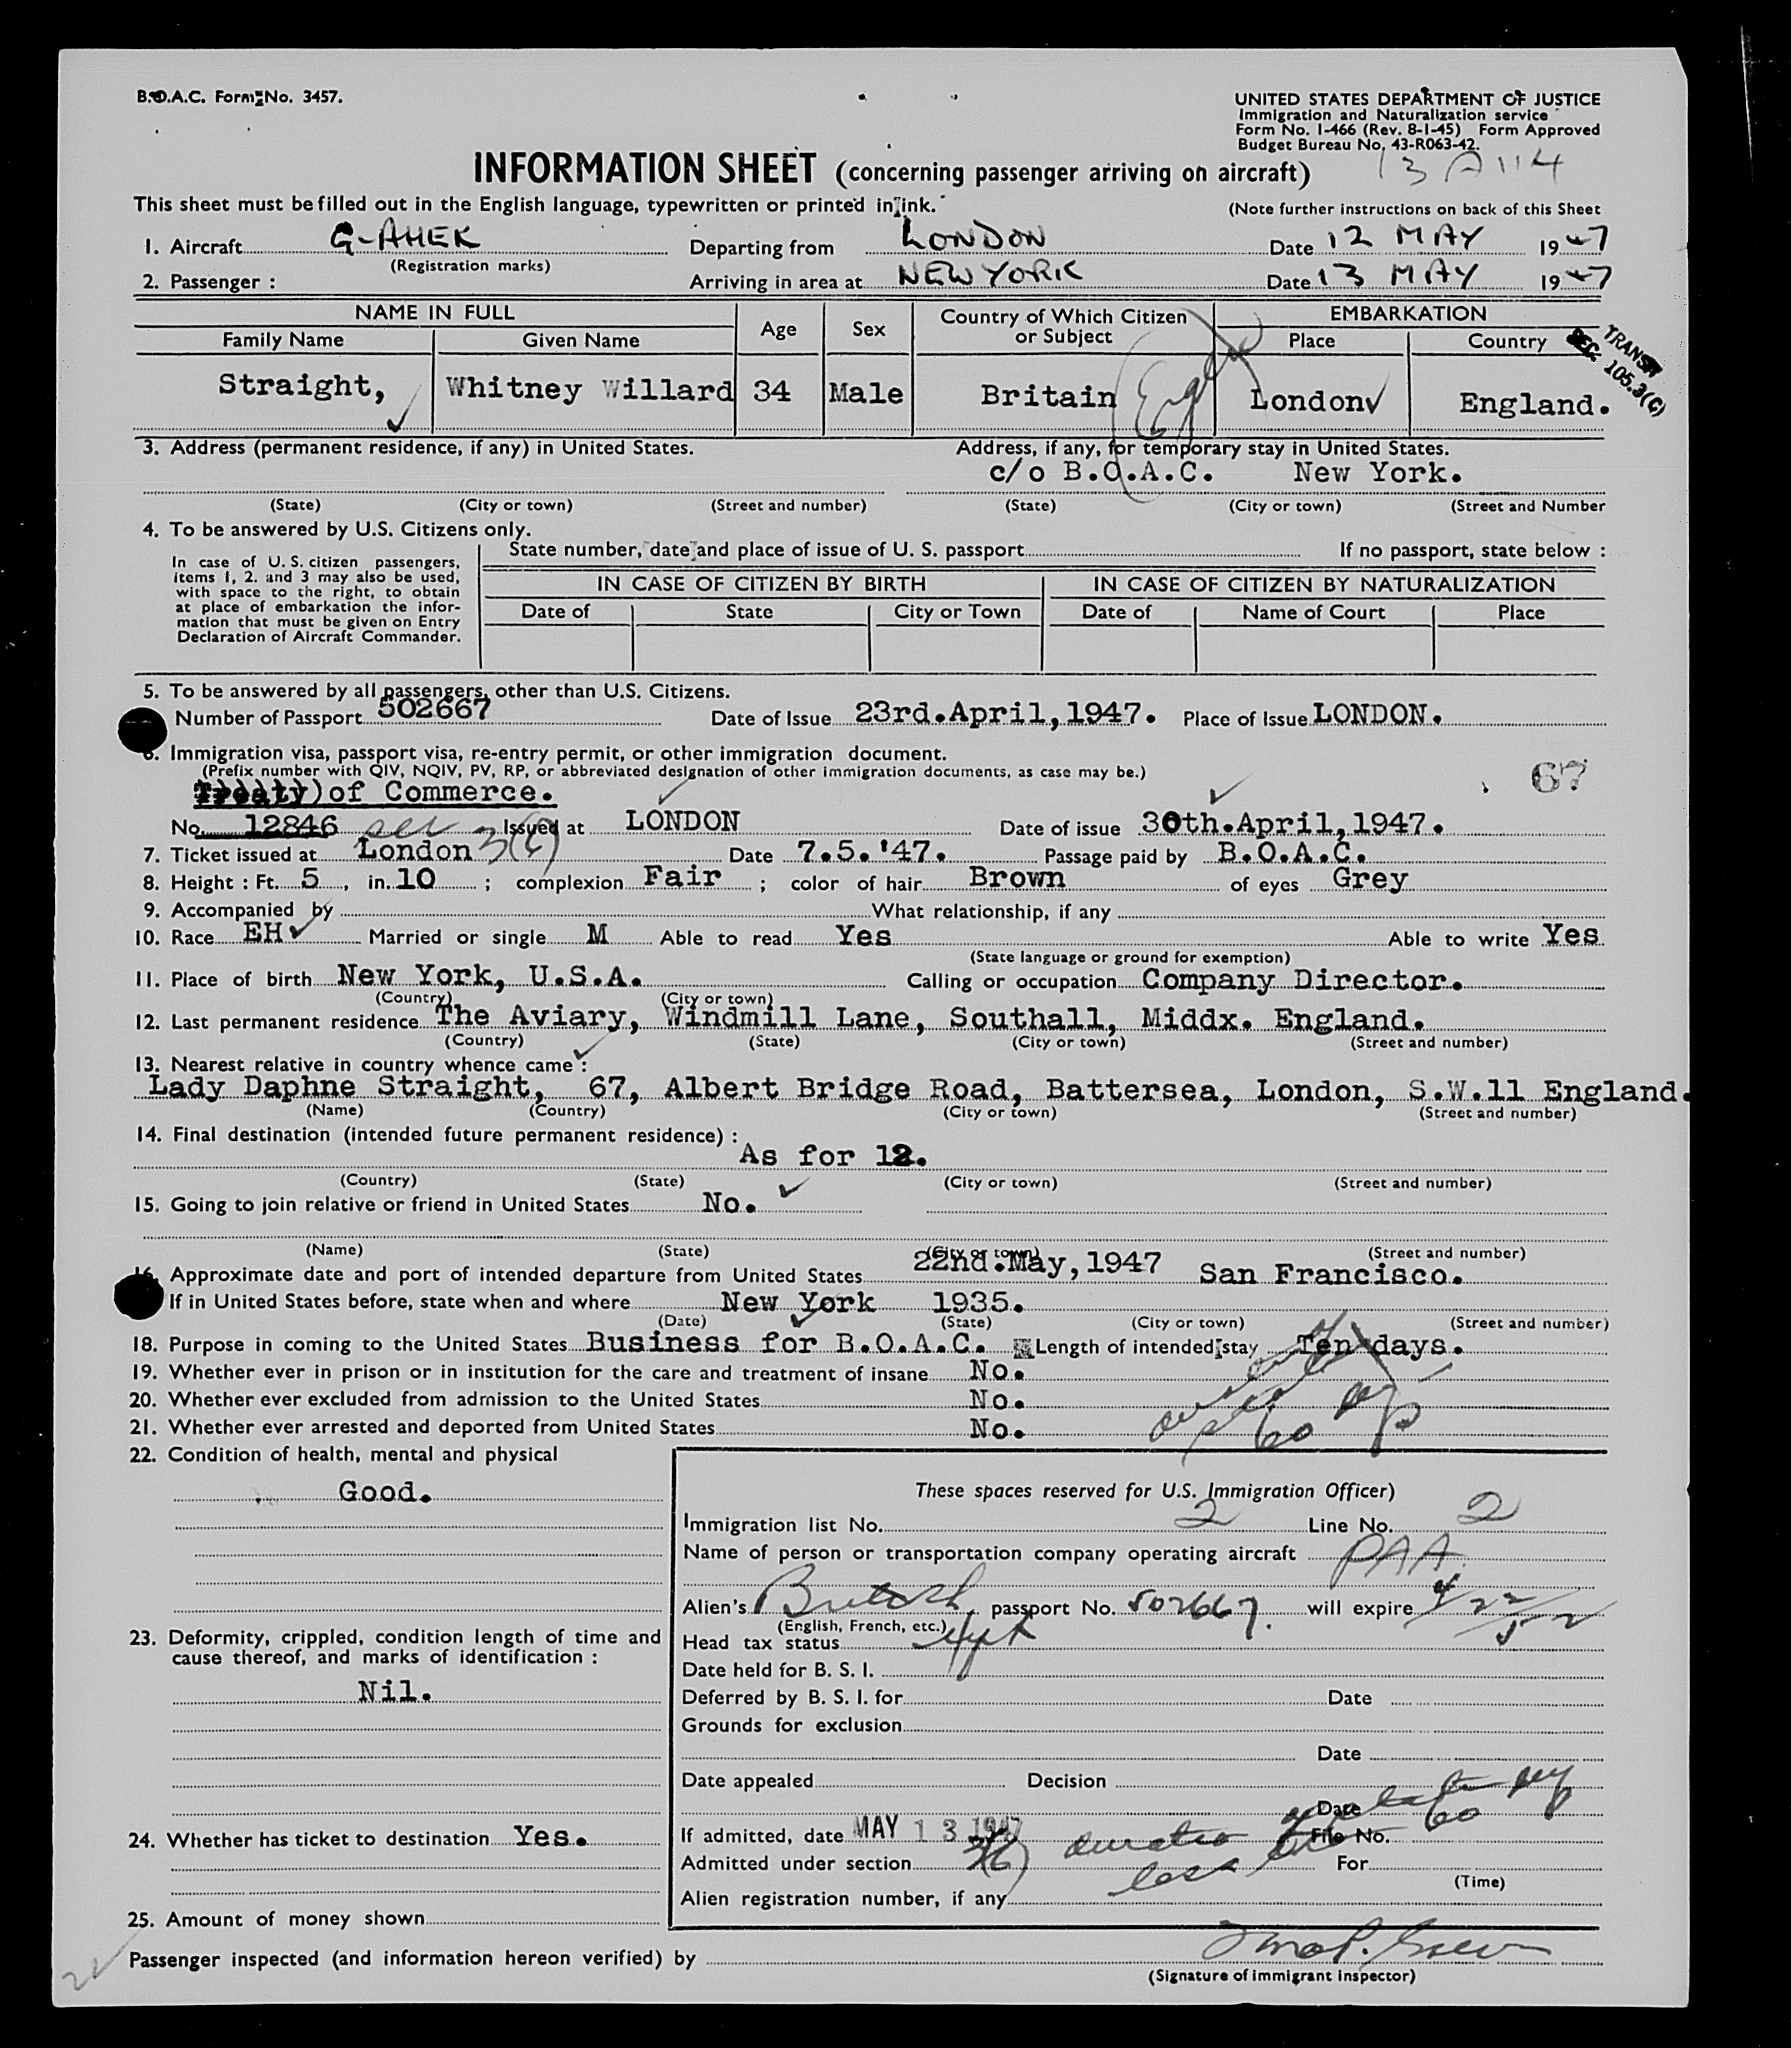 B.O.A.C. Form No. 3457.
UNITED STATES DEPARTMENT OF JUSTICE
Immigration and Naturalization service
Form No. I-466 (Rev. 8-1-45) Form Approved
Budget Bureau No. 43-R063-42.
INFORMATION SHEET (concerning passenger arriving on aircraft)
13 A 114
This sheet must be filled out in the English language, typewritten or printed in ink.
(Note further instructions on back of this Sheet
1. Aircraft G-AHEK Departing from LONDON Date 12 MAY 1947
(Registration marks)
2. Passenger : Arriving in area at NEW YORK Date 13 MAY 1947
NAME IN FULL Age Sex Country of Which Citizen or Subject EMBARKATION
Family Name Given Name Place Country
TRANSIT
SEC. 105.3(C)
Straight, Whitney Willard 34 Male Britain London England.
3. Address (permanent residence, if any) in United States. Address, if any, for temporary stay in United States.
c/o B.O.A.C. New York.
(State) (City or town) (Street and number) (State) (City or town) (Street and Number
4. To be answered by U.S. Citizens only.
In case of U.S. citizen passengers, items 1, 2. and 3 may also be used, with space to the right, to obtain at place of embarkation the information that must be given on Entry Declaration of Aircraft Commander.
State number, date and place of issue of U. S. passport If no passport, state below :
IN CASE OF CITIZEN BY BIRTH IN CASE OF CITIZEN BY NATURALIZATION
Date of State City or Town Date of Name of Court Place
5. To be answered by all passengers, other than U.S. Citizens.
Number of Passport 502667 Date of Issue 23rd.April,1947. Place of Issue LONDON.
6. Immigration visa, passport visa, re-entry permit, or other immigration document.
(Prefix number with QIV, NQIV, PV, RP, or abbreviated designation of other immigration documents, as case may be.)
67
Treaty) of Commerce.
No. 12846 sec 3(6) Issued at LONDON Date of issue 30th.April,1947.
7. Ticket issued at London Date 7.5.'47. Passage paid by B.O.A.C.
8. Height : Ft. 5 , in. 10 ; complexion Fair ; color of hair Brown of eyes Grey
9. Accompanied by What relationship, if any
10. Race EH Married or single M Able to read Yes Able to write Yes
(State language or ground for exemption)
11. Place of birth New York, U.S.A. Calling or occupation Company Director.
(Country) (City or town)
12. Last permanent residence The Aviary, Windmill Lane, Southall, Middx. England.
(Country) (State) (City or town) (Street and number)
13. Nearest relative in country whence came :
Lady Daphne Straight, 67, Albert Bridge Road, Battersea, London, S.W.11 England.
(Name) (Country) (City or town) (Street and number)
14. Final destination (intended future permanent residence) :
As for 12.
(Country) (State) (City or town) (Street and number)
15. Going to join relative or friend in United States No.
(Name) (State) (City or town) (Street and number)
16. Approximate date and port of intended departure from United States 22nd.May,1947 San Francisco.
If in United States before, state when and where New York 1935.
(Date) (State) (City or town) (Street and number)
18. Purpose in coming to the United States Business for B.O.A.C. Length of intended stay Ten days.
19. Whether ever in prison or in institution for the care and treatment of insane No.
20. Whether ever excluded from admission to the United States No.
21. Whether ever arrested and deported from United States No.
60
22. Condition of health, mental and physical
Good.
These spaces reserved for U.S. Immigration Officer)
Immigration list No. 2 Line No. 2
Name of person or transportation company operating aircraft PAA
Alien's British passport No. 502667. will expire 4/22/52
(English, French, etc.)
Head tax status
23. Deformity, crippled, condition length of time and
cause thereof, and marks of identification :
Nil.
Date held for B. S. I.
Deferred by B. S. I. for Date
Grounds for exclusion
Date
Date appealed Decision
Date 60
24. Whether has ticket to destination Yes.
If admitted, date MAY 13 1947 File No.
Admitted under section 3(6) less For
(Time)
Alien registration number, if any
25. Amount of money shown
Passenger inspected (and information hereon verified) by
(Signature of immigrant inspector)